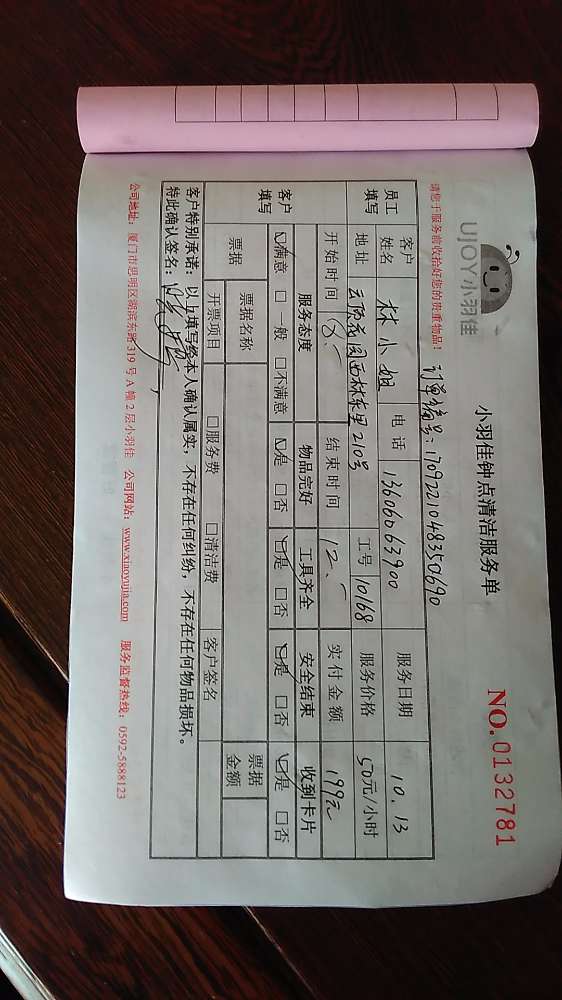 UJOY小羽佳
小羽佳钟点清洁服务单
NO.0132781
订单编号:1709221048350690
请您于服务前收拾好您的贵重物品!
员工填写 客户姓名 林小姐 电话 13606063900 服务日期 10.13
地址 云顶花园西林东里210号 工号 10168 服务价格 50元/小时
开始时间 8.- 结束时间 12.- 实付金额 199元
客户填写 服务态度 物品完好 工具齐全 安全结束 收到卡片
☑满意 □一般 □不满意 ☑是 □否 ☑是 □否 ☑是 □否 ☑是 □否
票据 票据名称 客户签名 票据金额
开票项目 □服务费 □清洁费
客户特别承诺:以上填写经本人确认属实,不存在任何纠纷,不存在任何物品损坏。
特此确认签名:
公司地址:厦门市思明区湖滨东路319号A幢2层小羽佳 公司网站:www.xiaoyujia.com 服务监督热线:0592-5888123